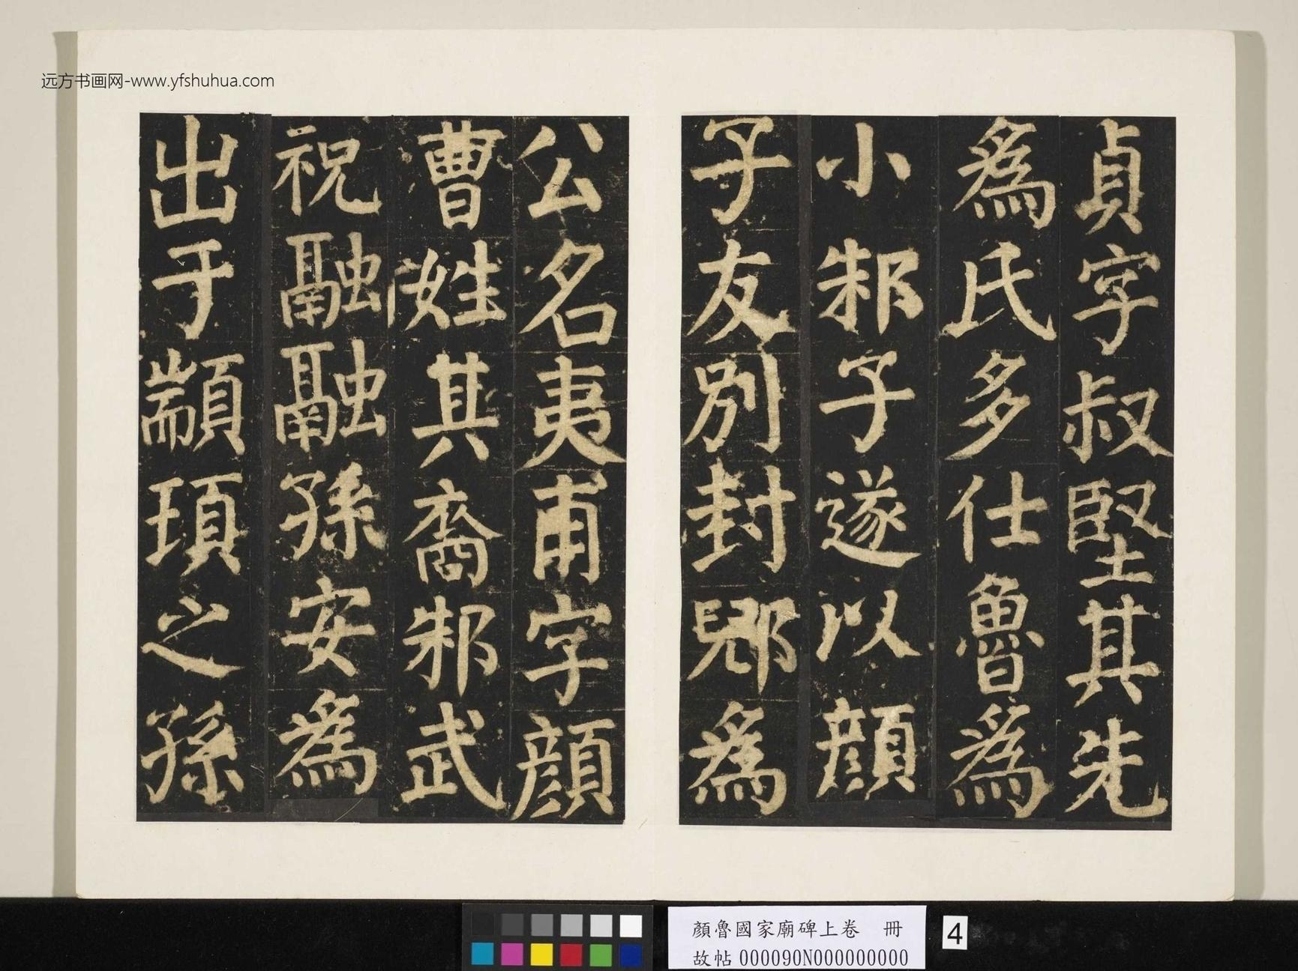 远方书画网-www.yfshuhua.com
貞字叔堅其先
爲氏多仕魯爲
小邾子遂以顔
子友別封郳爲
公名夷甫字顔
曹姓其裔邾武
祝融融孫安爲
出于顓頊之孫
顏魯國家廟碑上卷 冊
故帖000090N000000000
4